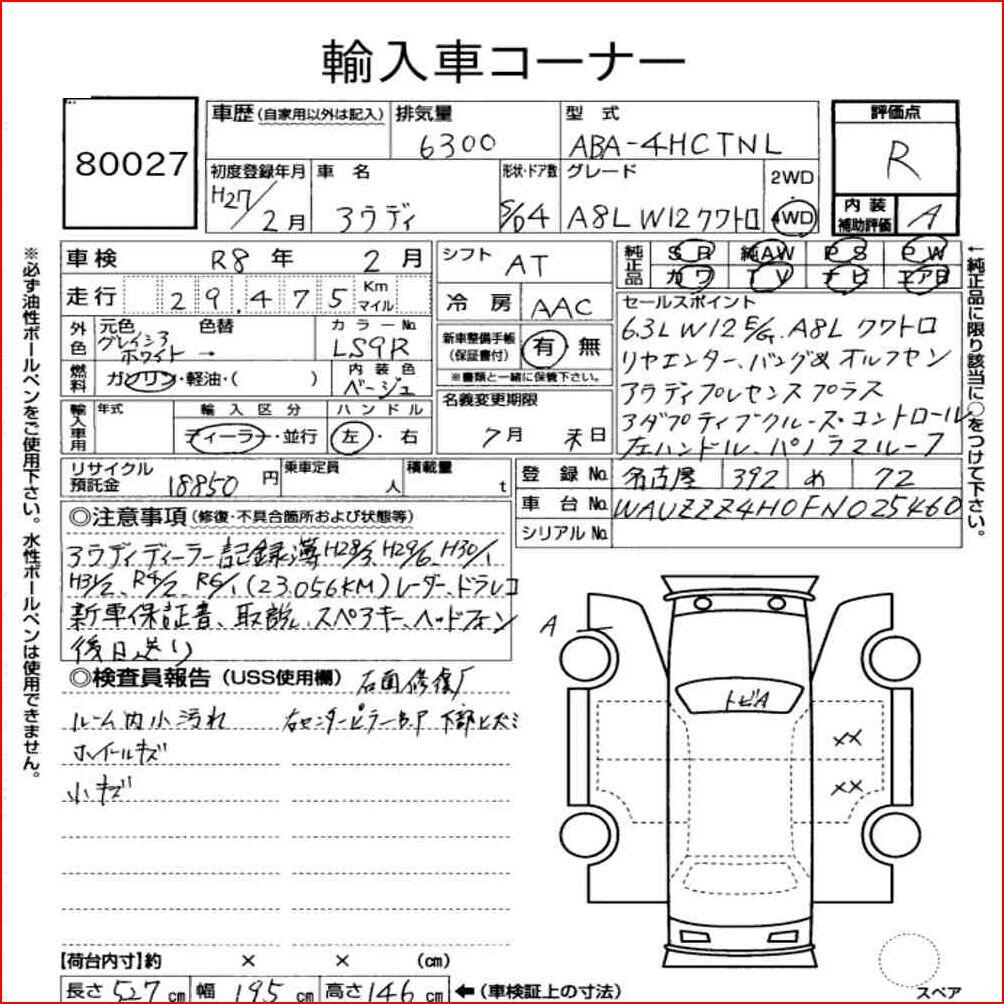 輸入車コーナー
80027
車歴(自家用以外は記入)
排気量
6300
型式
ABA-4HCTNL
評価点
R
初度登録年月
H27/2月
車名
アウディ
形状・ドア数
S/04
グレード
A8L W12クワトロ
2WD
4WD
内装補助評価
A
※必ず油性ボールペンをご使用下さい。水性ボールペンは使用できません。
車検 R8年 2月
シフト AT
純正品
SR 純AW PS PW
カワ TV ナビ エアB
←純正品に限り該当に○をつけて下さい。
走行 29,475 Km マイル
冷房 AAC
セールスポイント
6.3L W12 E/G. A8L クワトロ
リヤエンター、バング&オルフセン
アウディプレセンスプラス
アダプティブクルーズ・コントロール
左ハンドル、パノラマルーフ
外色
元色 色替
グレイシアホワイト →
カラーNo.
LS9R
新車整備手帳(保証書付)
有 無
※書類と一緒に保管下さい。
燃料 ガソリン・軽油・( )
内装色
ベージュ
名義変更期限
7月 末日
輸入車用
年式
輸入区分
ディーラー・並行
ハンドル
左・右
リサイクル預託金 18850円
乗車定員 人
積載量 t
登録No. 名古屋 392 め 72
車台No. WAUZZZ4H0FN025460
シリアルNo.
◎注意事項(修復・不具合箇所および状態等)
アウディディーラー記録簿H28/3、H29/6、H30/1
H31/2、R4/2、R6/1(23.056KM)レーダー、ドラレコ
新車保証書、取説、スペアキー、ヘッドフォン
後日送り
◎検査員報告(USS使用欄)
右面修復歴
ルーム内小汚れ
右センターピラーB.P 下部ヒズミ
ホイールキズ
小キズ
A
トビA
××
××
【荷台内寸】約 × × (cm)
長さ527cm 幅195cm 高さ146cm ←(車検証上の寸法)
スペア